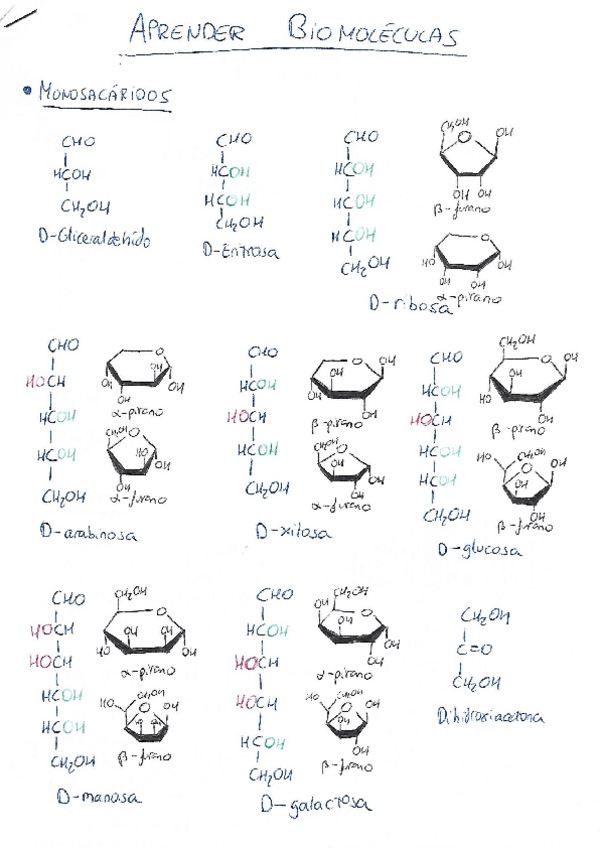 APRENDER BIOMOLÉCULAS
• MONOSACÁRIDOS
CHO
HCOH
CH₂OH
D-Gliceraldehido
CHO
HCOH
HCOH
CH₂OH
D-Eritrosa
CHO
HCOH
HCOH
HCOH
CH₂OH
CH₂OH
O
OH
OH OH
β-furano
O
HO
OH
OH
OH
α-pirano
D-ribosa
CHO
HOCH
HCOH
HCOH
CH₂OH
O
OH
OH
OH
OH
α-pirano
CH₂OH
O
HO
OH
OH
α-furano
D-arabinosa
CHO
HCOH
HOCH
HCOH
CH₂OH
O
OH
OH
OH
OH
β-pirano
CH₂OH
O
OH
OH
OH
α-furano
D-xilosa
CHO
HCOH
HOCH
HCOH
HCOH
CH₂OH
CH₂OH
O
OH
OH
HO
OH
β-pirano
HO
CH₂OH
O
OH
OH
OH
β-furano
D-glucosa
CHO
HOCH
HOCH
HCOH
HCOH
CH₂OH
CH₂OH
O
OH
OH
HO
OH
α-pirano
HO
CH₂OH
O
OH
β-furano
D-manosa
CHO
HCOH
HOCH
HOCH
HCOH
CH₂OH
CH₂OH
OH
O
OH
OH
OH
α-pirano
HO
CH₂OH
O
OH
OH
OH
β-furano
D-galactosa
CH₂OH
C=O
CH₂OH
Dihidroxiacetona